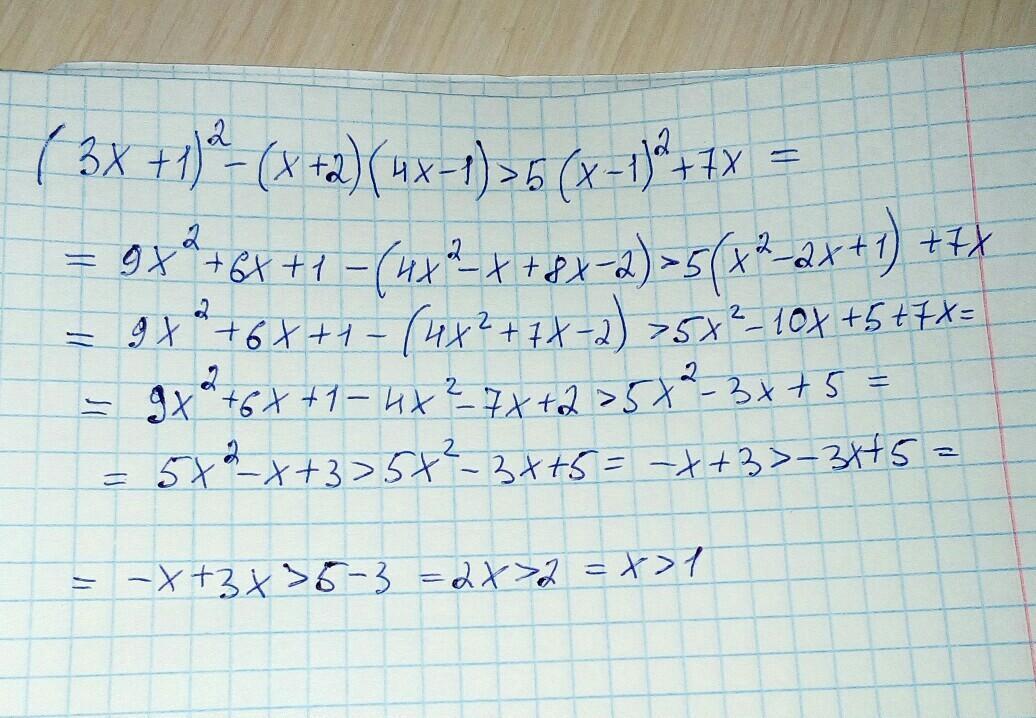 (3x+1)²-(x+2)(4x-1)>5(x-1)²+7x =
= 9x²+6x+1-(4x²-x+8x-2)>5(x²-2x+1)+7x
= 9x²+6x+1-(4x²+7x-2)>5x²-10x+5+7x=
= 9x²+6x+1-4x²-7x+2>5x²-3x+5 =
= 5x²-x+3>5x²-3x+5 = -x+3>-3x+5 =
= -x+3x>5-3 = 2x>2 = x>1